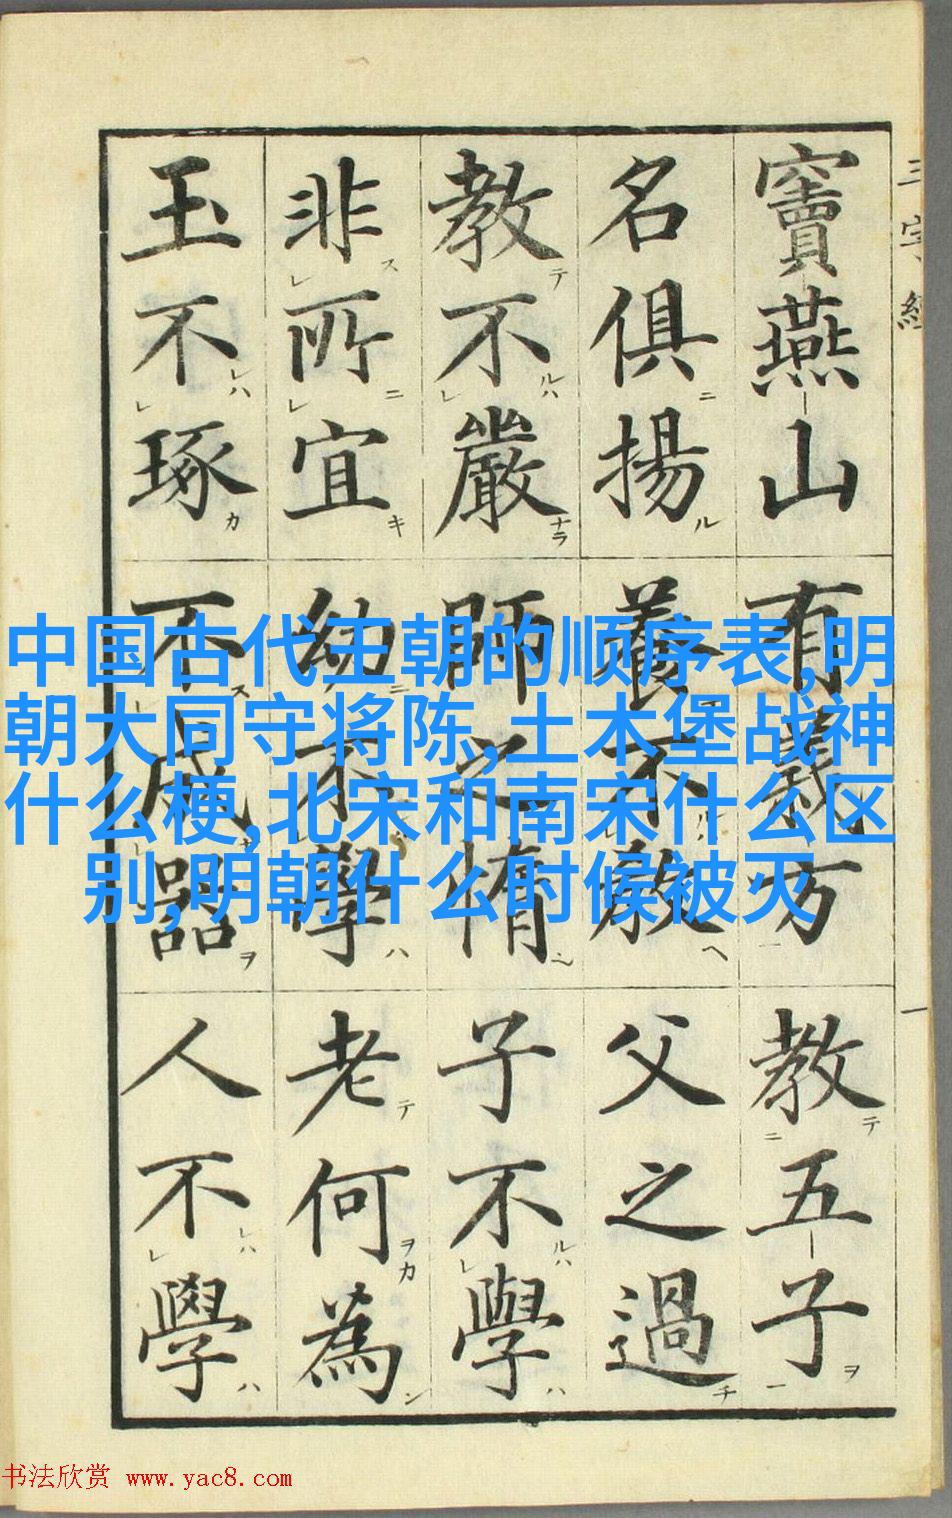 三字經
竇燕山有義方教五子
名俱揚養不教父之過
教不嚴師之惰子不學
非所宜幼不學老何為
玉不琢不成器人不學
一
中国古代王朝的顺序表,明
朝大同守将陈,土木堡战神
什么梗,北宋和南宋什么区
别,明朝什么时候被灭
书法欣赏 www.yac8.com